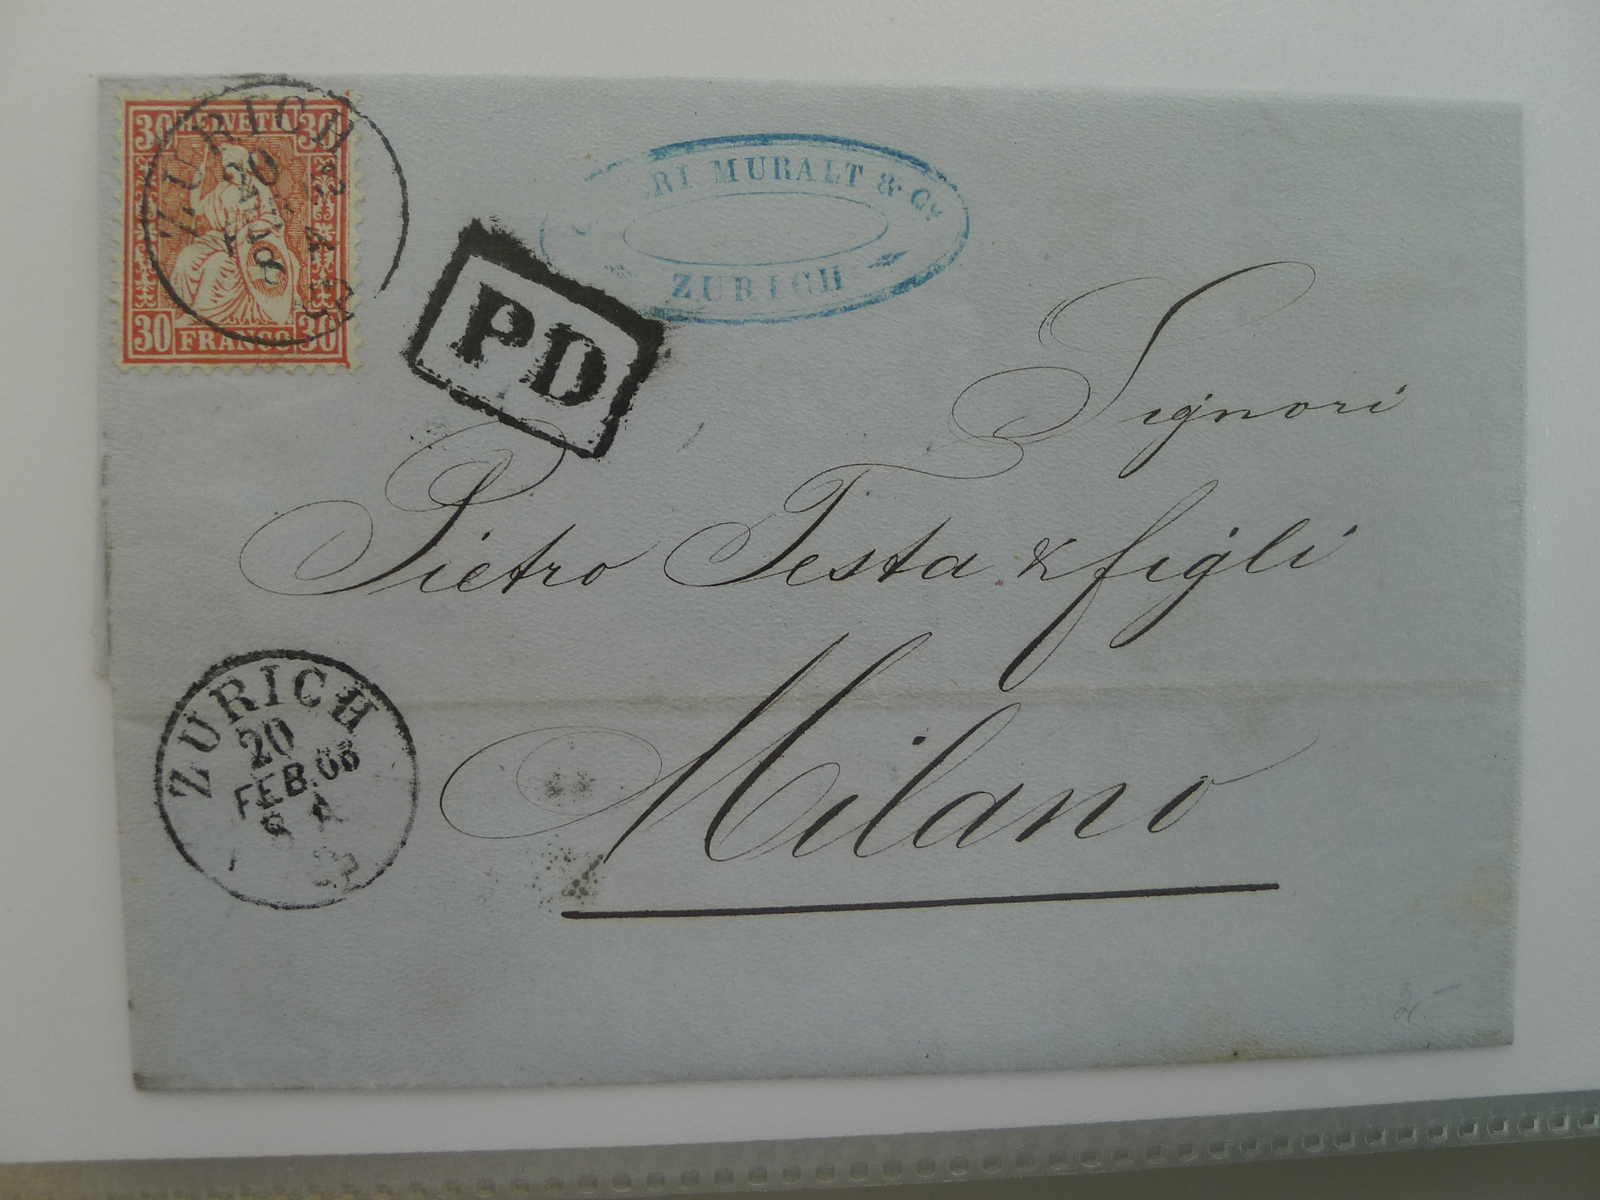 30 HELVETIA 30
ZURICH
20
30 FRANCO 30
PD
MURALT & Cº
ZURICH
Signori
Pietro Testa & figli
Milano
ZURICH
20
FEB. 68